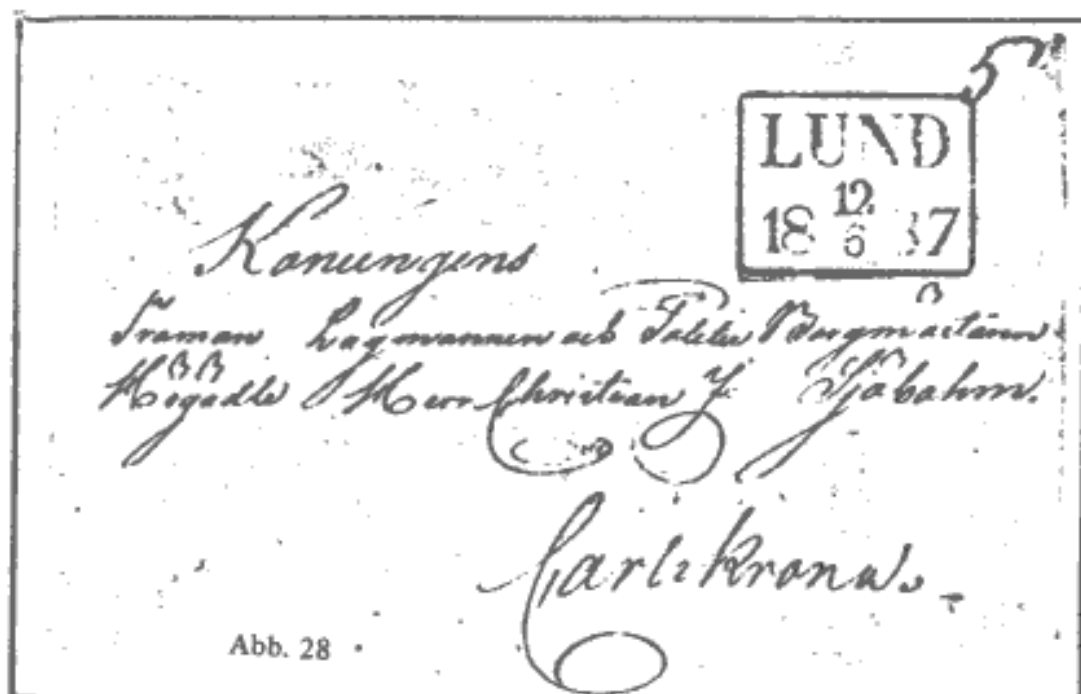 5
LUND
18 12/6 37
Konungens
Troman Lagmannen och Politie Borgmästaren
Högädle Herr Christian J. Sjöbohm.
Carlskrona.
Abb. 28